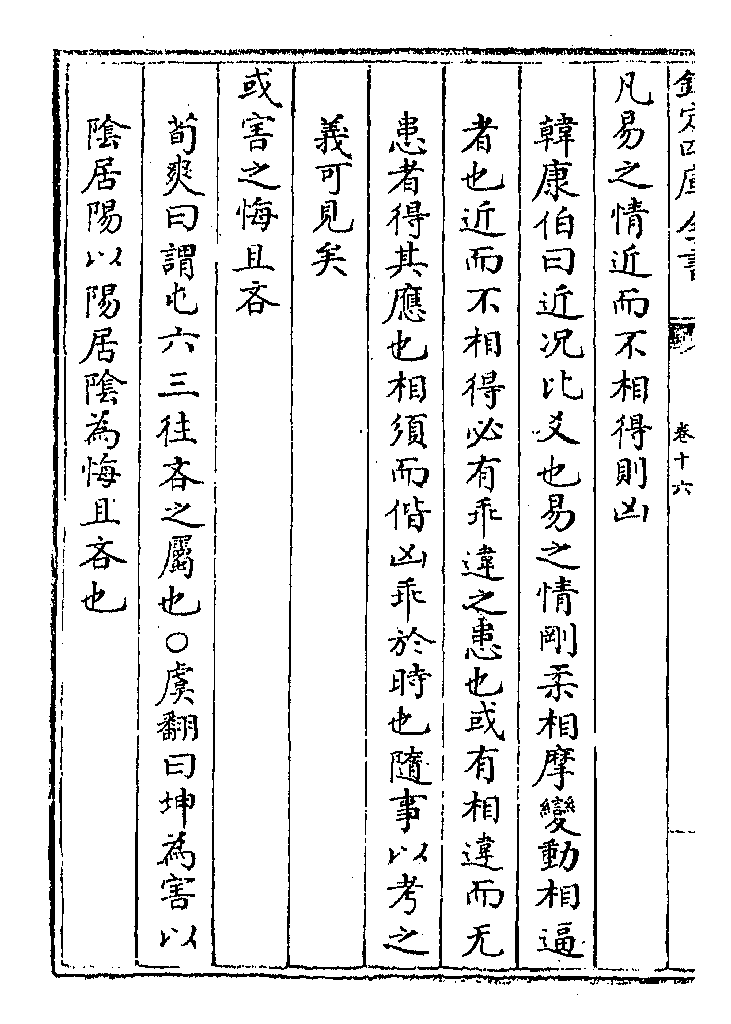 欽定四庫全書
卷十六
凡易之情近而不相得則凶
韓康伯曰近况比爻也易之情剛柔相摩變動相逼
者也近而不相得必有乖違之患也或有相違而无
患者得其應也相須而偕凶乖於時也隨事以考之
義可見矣
或害之悔且吝
荀爽曰謂屯六三往吝之屬也○虞翻曰坤為害以
陰居陽以陽居陰為悔且吝也